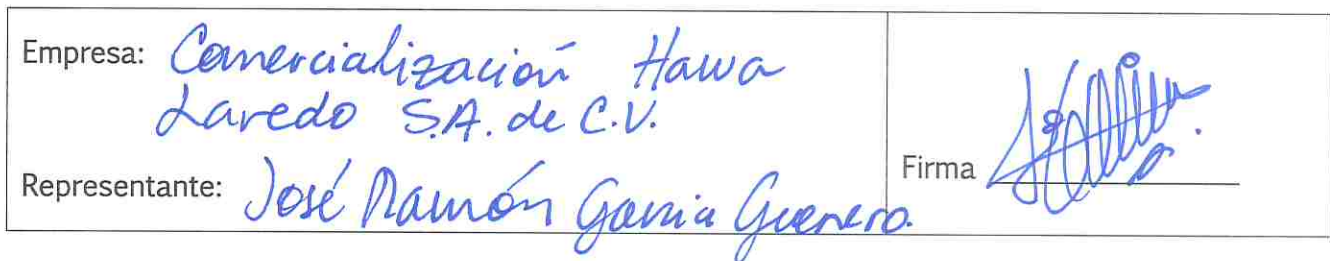 Empresa: Comercialización Hawa
Laredo S.A. de C.V.
Representante: José Ramón García Guerrero.
Firma